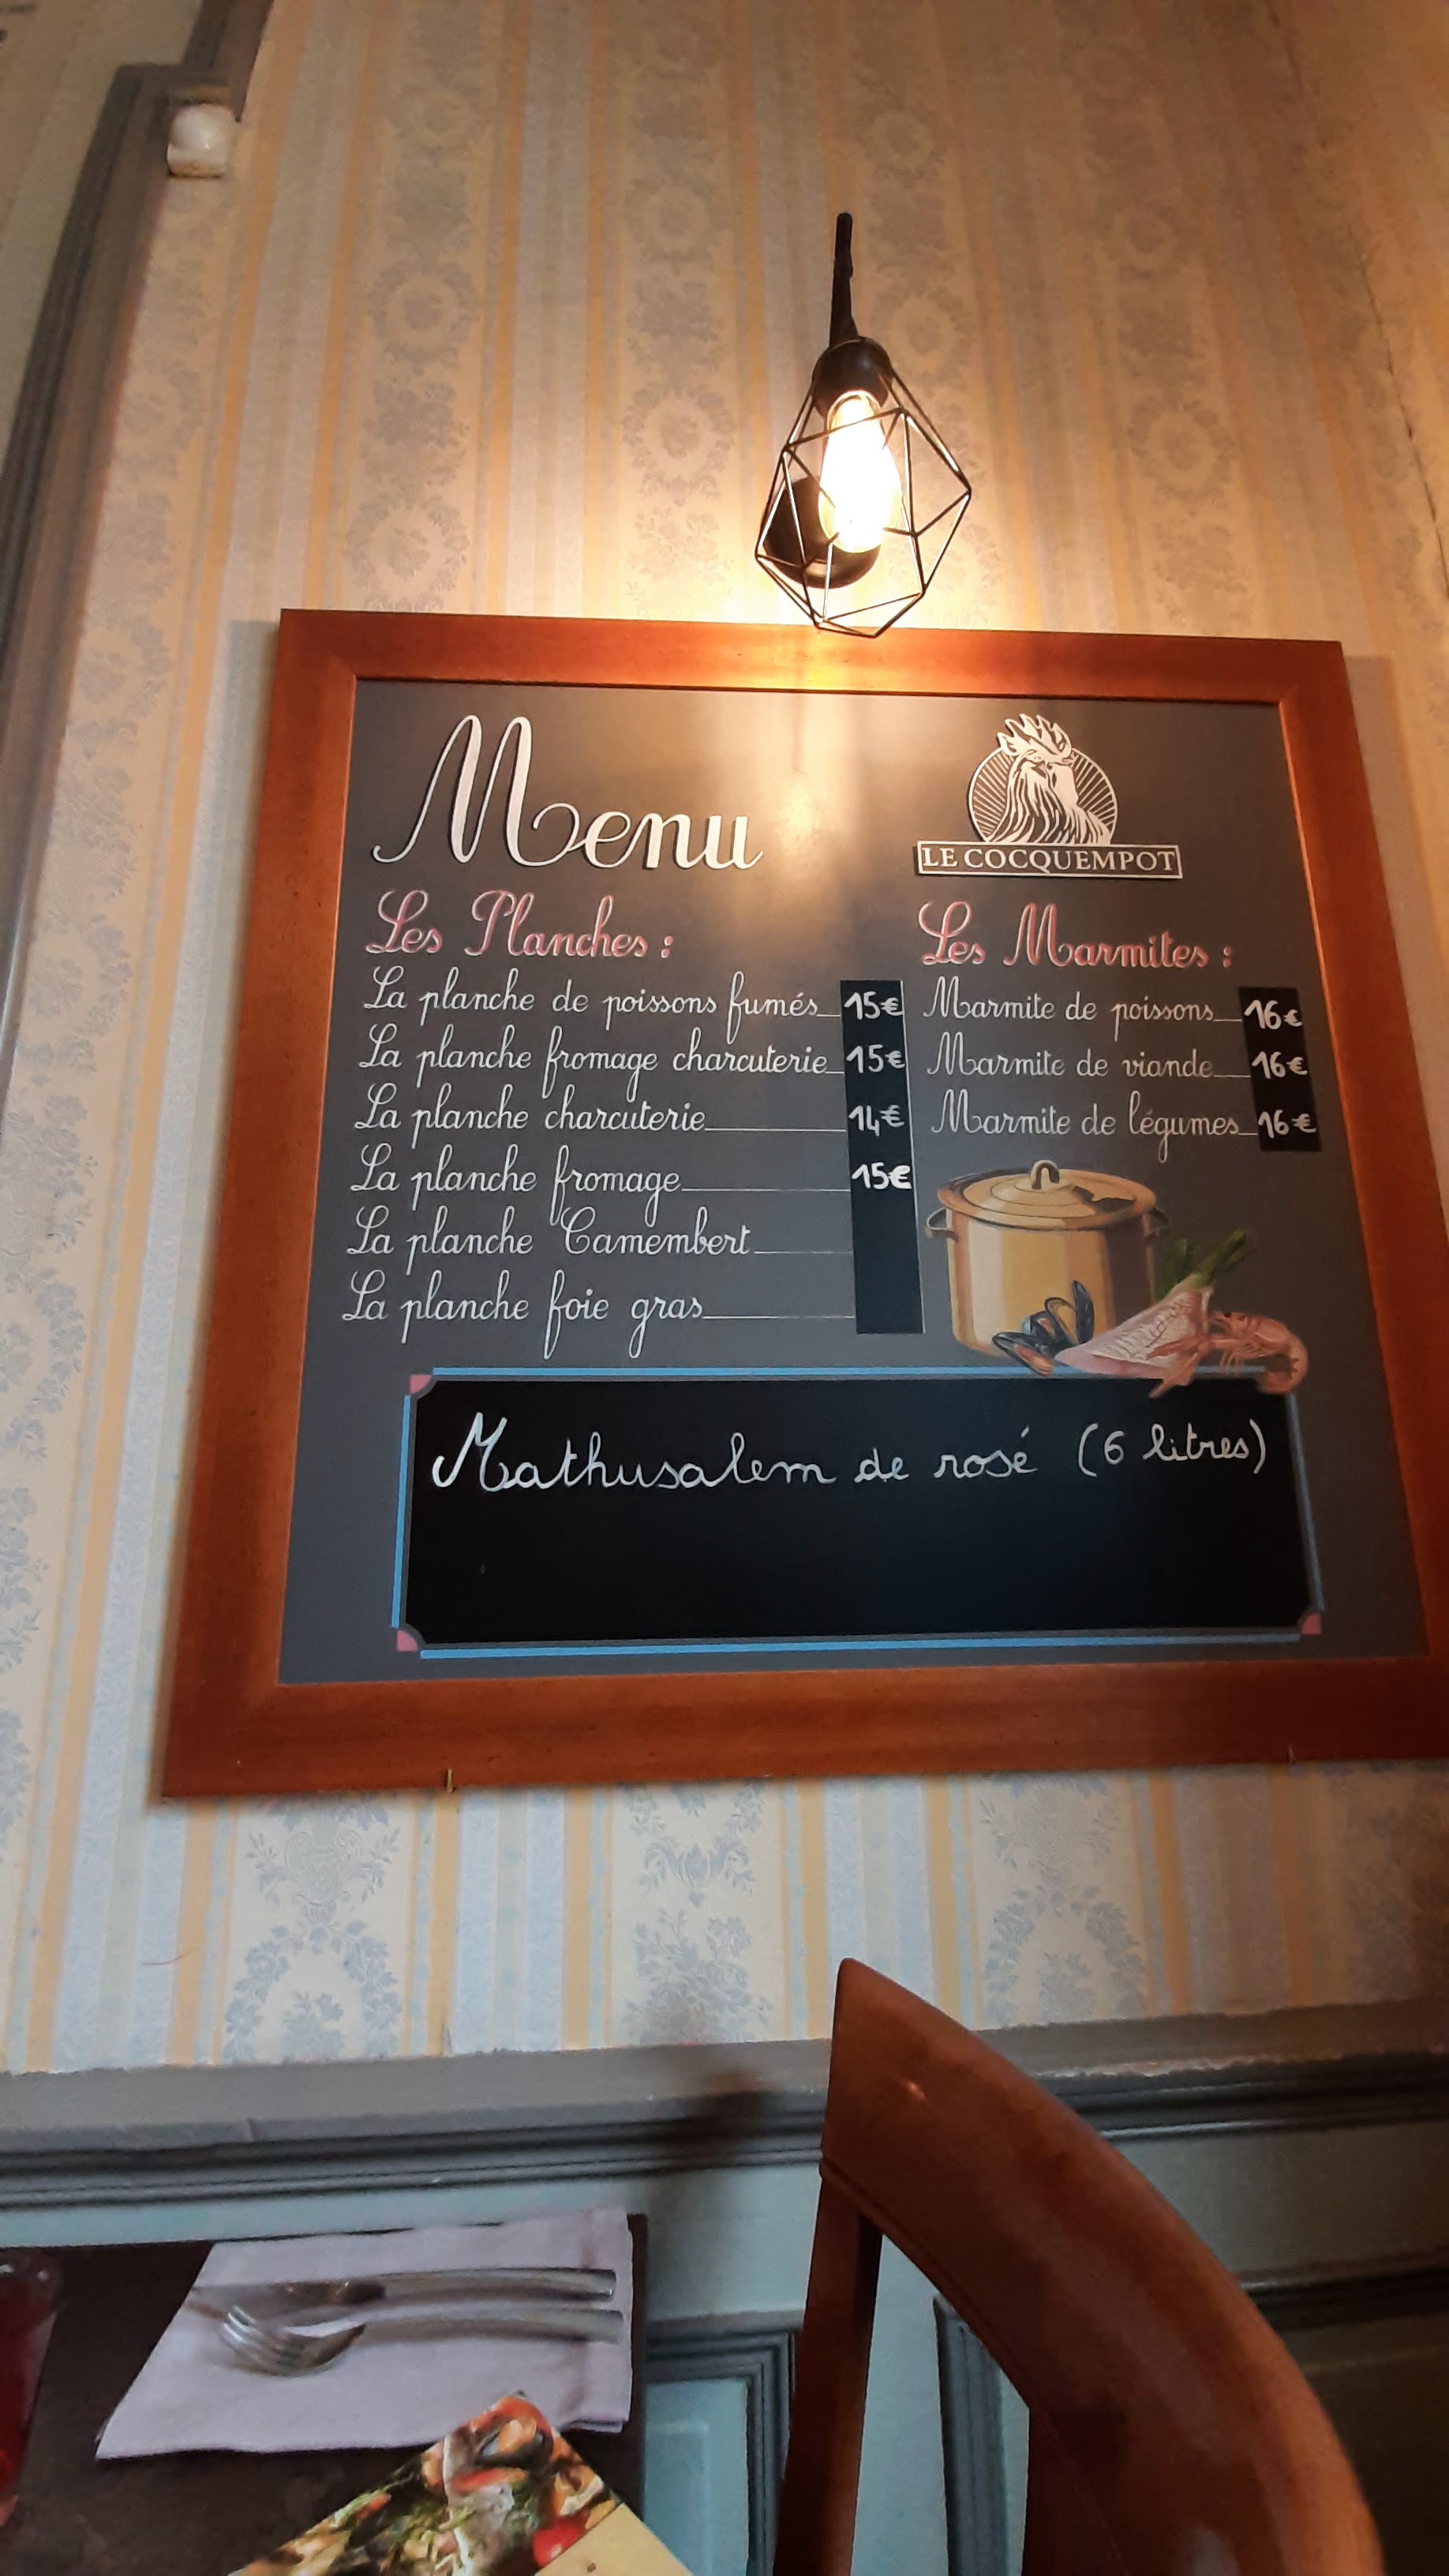 Menu
LE COCQUEMPOT
Les Planches :
La planche de poissons fumés 15€
La planche fromage charcuterie 15€
La planche charcuterie 14€
La planche fromage 15€
La planche Camembert
La planche foie gras
Les Marmites :
Marmite de poissons 16€
Marmite de viande 16€
Marmite de légumes 16€
Mathusalem de rosé (6 litres)